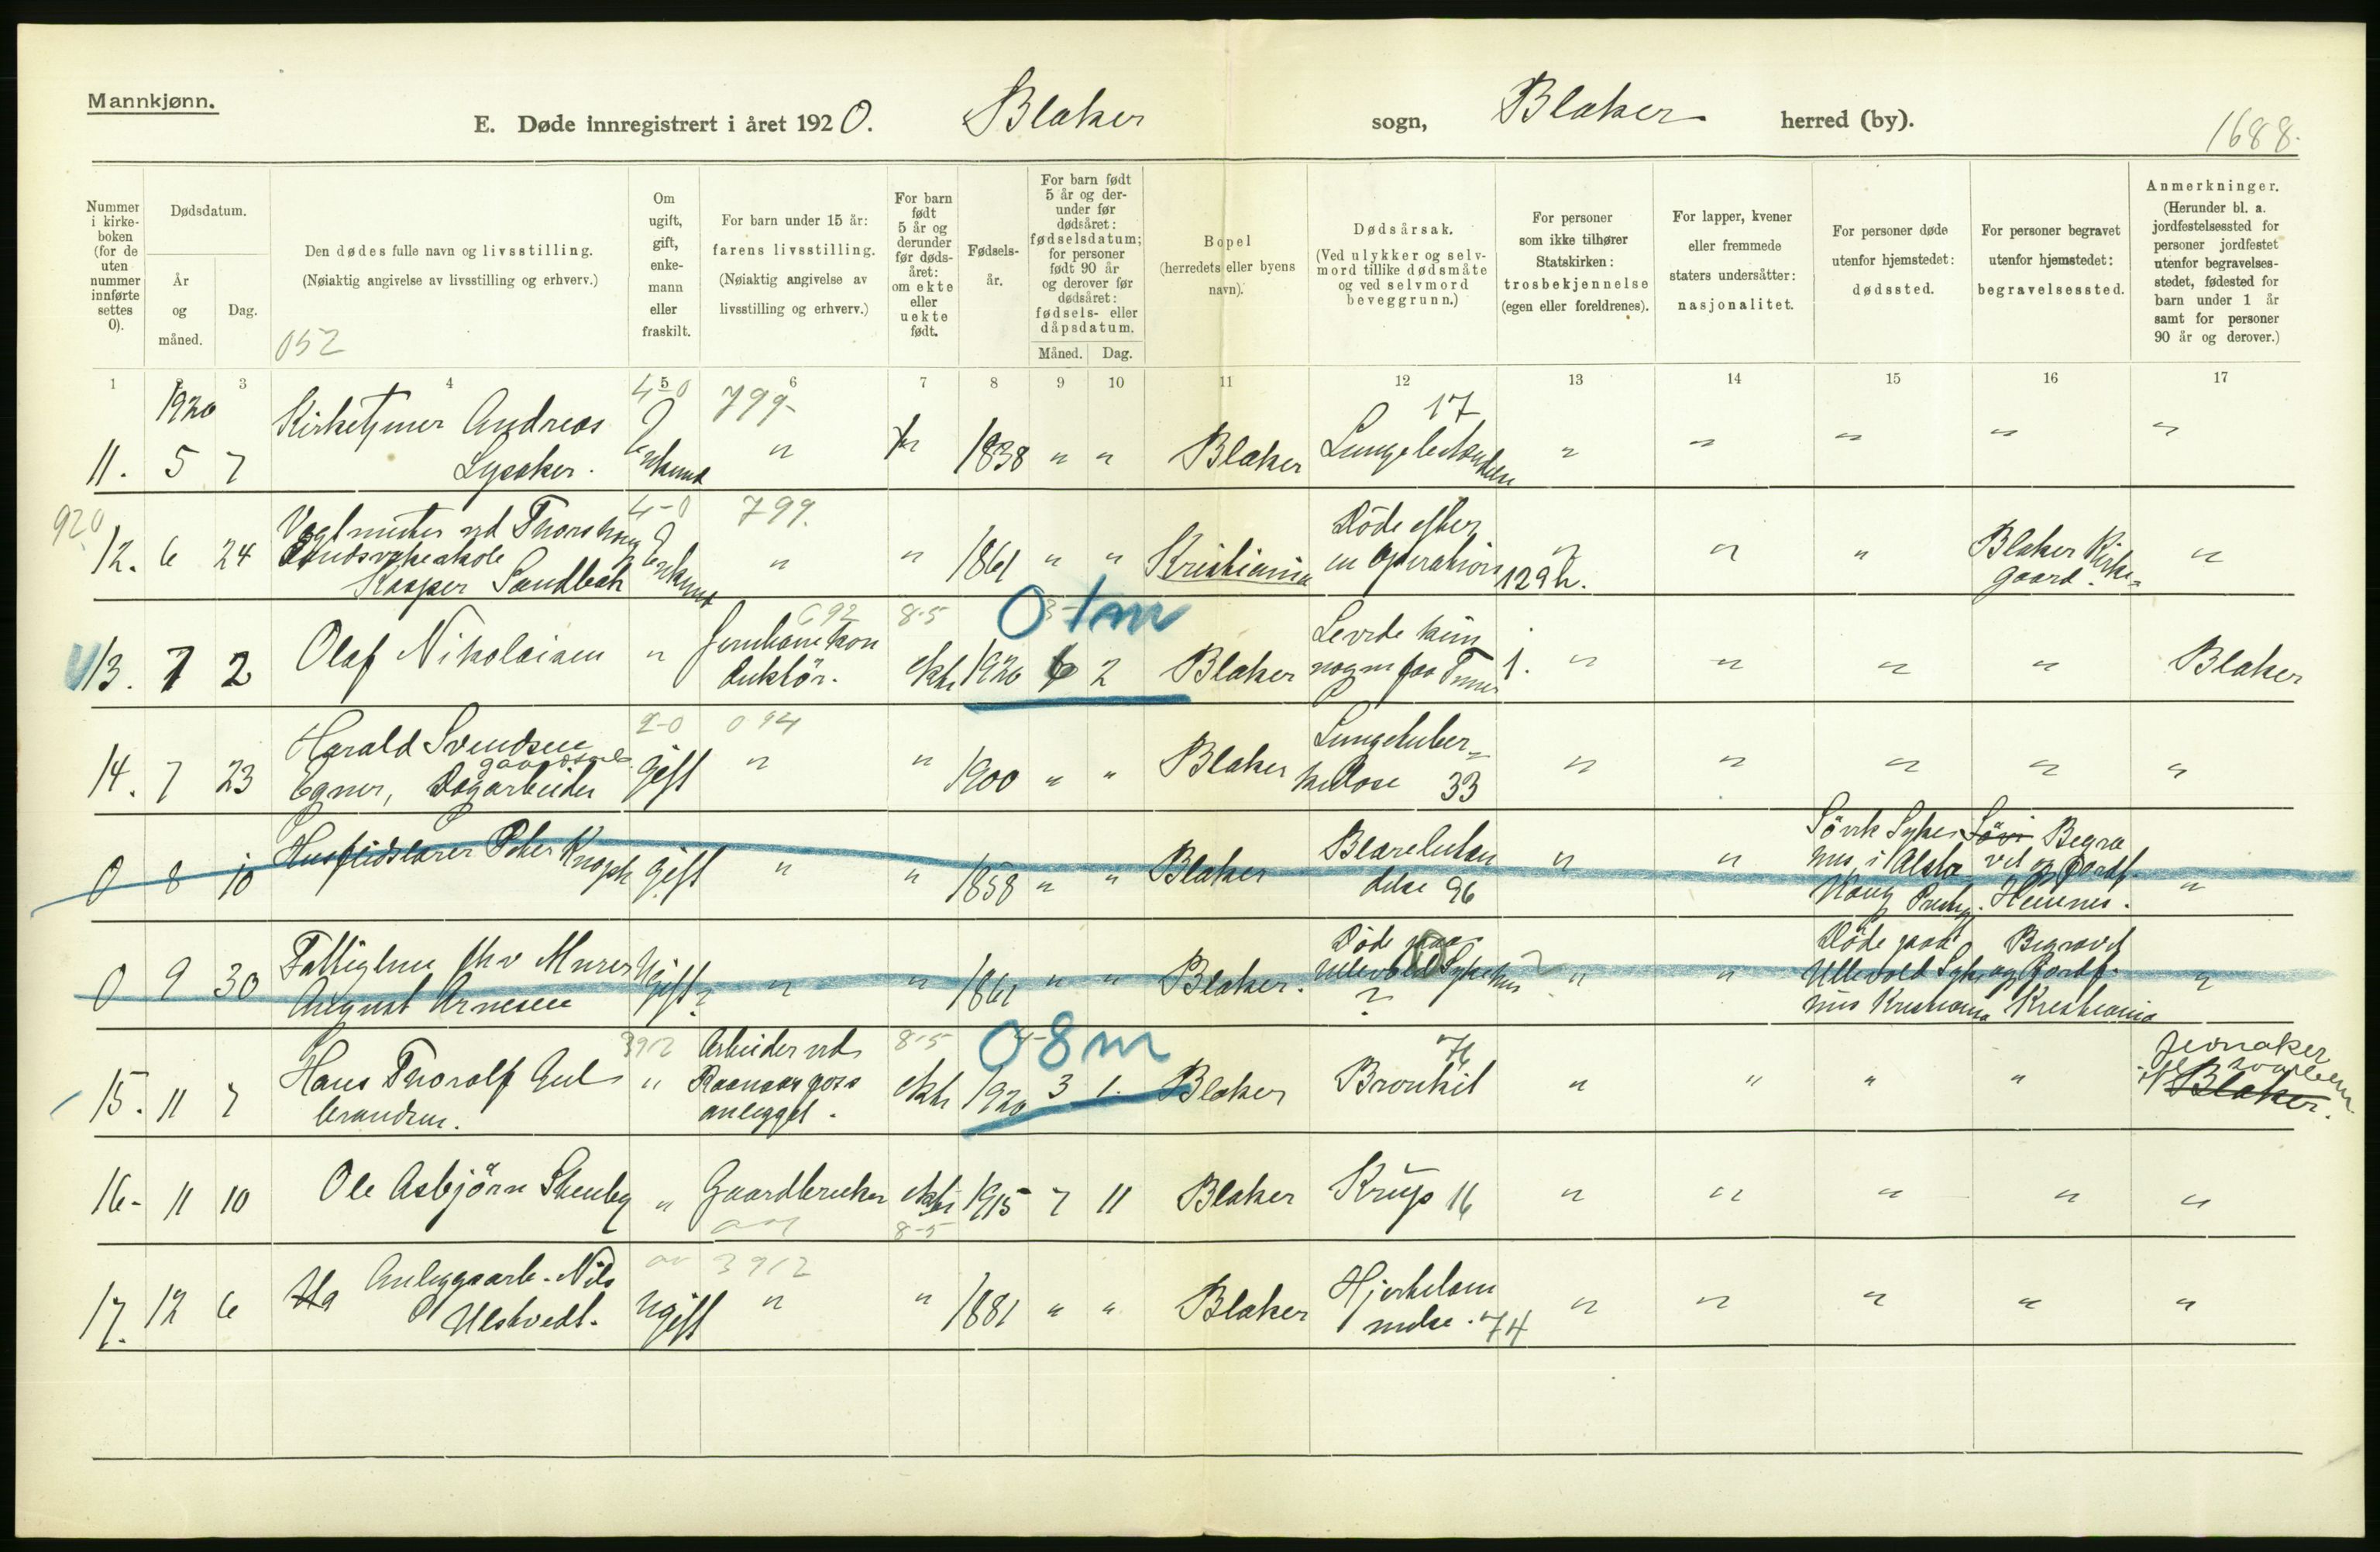 Mannkjønn.
E. Døde innregistrert i året 1920. Blaker sogn, Blaker herred (by).
1688.
Nummer i kirkeboken (for de uten nummer innførte settes 0).
Dødsdatum.
År og måned.
Dag.
Den dødes fulle navn og livsstilling.
(Nøiaktig angivelse av livsstilling og erhverv.)
052
Om ugift, gift, enkemann eller fraskilt.
For barn under 15 år: farens livsstilling.
(Nøiaktig angivelse av livsstilling og erhverv.)
For barn født 5 år og derunder før dødsåret: om ekte eller uekte født.
Fødselsår.
For barn født 5 år og derunder før dødsåret: fødselsdatum; for personer født 90 år og derover før dødsåret: fødsels- eller dåpsdatum.
Måned. Dag.
Bopel
(herredets eller byens navn).
Dødsårsak.
(Ved ulykker og selvmord tillike dødsmåte og ved selvmord beveggrunn.)
For personer som ikke tilhører Statskirken: trosbekjennelse (egen eller foreldrenes).
For lapper, kvener eller fremmede staters undersåtter: nasjonalitet.
For personer døde utenfor hjemstedet: dødssted.
For personer begravet utenfor hjemstedet: begravelsessted.
Anmerkninger.
(Herunder bl. a. jordfestelsessted for personer jordfestet utenfor begravelsesstedet, fødested for barn under 1 år samt for personer 90 år og derover.)
1 2 3 4 5 6 7 8 9 10 11 12 13 14 15 16 17
1920 Kirketjener Andreas 4-0 799- 17
11. 5 7 Lysaker. Enkemd " 1838 " " Blaker Lungebetændelse " " " " "
920 4-0 799.
12. 6 24 Vagtmester ved Thorshaug
Landsvakeskole
Kasper Sandbak Enkemd " " 1861 " " Kristiania Døde efter
en Operation 129b. " " " Blaker Kirke=
gaard. "
692 8-5 0-1m
13. 7 2 Olaf Nikolaisen " Jernbanekon
duktör. ekte 1920 6 2 Blaker Levde kun
nogen faa Timer 1. " " " " Blaker
2-0 094
14. 7 23 Harald Svendsen
Egner, Dagarbeider gift " " 1900 " " Blaker Lungetuber=
kulose 33 " " " " "
0 8 10 Husflidslærer Peter Knoph gift " " 1858 " " Blaker Blærelidan
delse 96 " " Sövik Sykeh
hus i Alsta
haug Prestg. Begra
vet og Jordf.
Hemnes. "
0 9 30 Fattiglem fhv Murer
August Arnesen Ugift? " " 1861 " " Blaker. Döde paa
Ullevold Sykehus
? " " Döde paa
Ullevold Syke
hus Kristiania Begravet
og Jordf.
Kristiania "
3912 8-5 0-8m
15. 11 7 Hans Thoralf Gul
brandsen. " Arbeider ved
Raanaasfoss
anlegget. ekte 1920 3 1. Blaker Bronkit " " " " Jevnaker
Blaker.
16- 11 10 Ole Asbjörn Stenby " Gaardbruker ekte 1915 7 11 Blaker Krup 16 " " " " "
8-5
3912
17. 12 6 Anlegsarb. Nils
Ulstvedt. Ugift " " 1881 " " Blaker Hjertelam
melse. 74 " " " " "